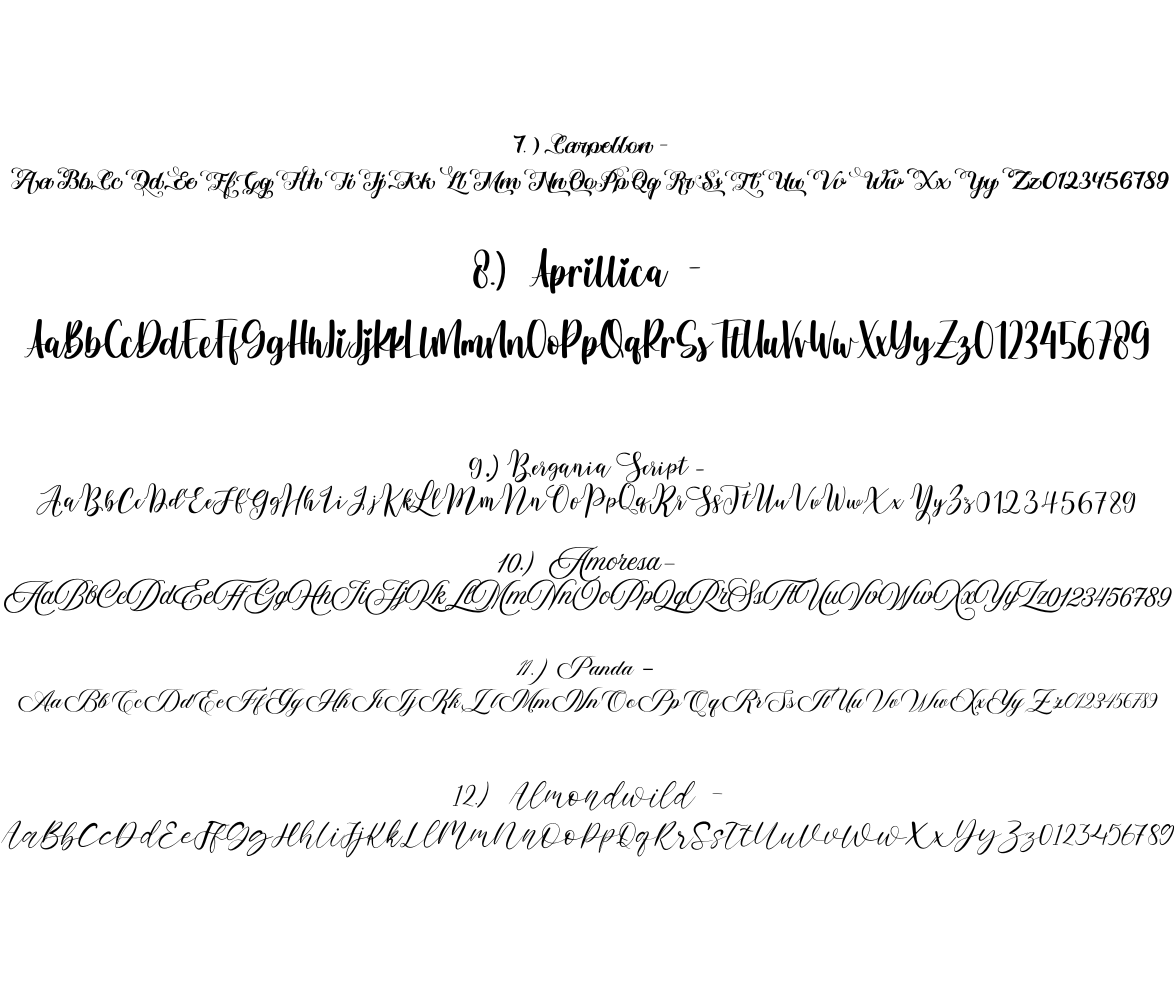 7.) Carpellon -
Aa Bb Cc Dd Ee Ff Gg Hh Ii Jj Kk Ll Mm Nn Oo Pp Qq Rr Ss Tt Uu Vv Ww Xx Yy Zz0123456789
8.) Aprillica -
AaBbCcDdEeFfGgHhIiJjKkLlMmNnOoPpQqRrSsTtUuVvWwXxYyZz0123456789
9.) Bergania Script -
AaBbCcDdEeFfGgHhIiJjKkLlMmNnOoPpQqRrSsTtUuVvWwXx YyZz0123456789
10.) Amoresa-
AaBbCcDdEeFfGgHhIiJjKkLlMmNnOoPpQqRrSsTtUuVvWwXxYyZz0123456789
11.) Panda -
AaBbCcDdEeFfGgHhIiJjKkLlMmNnOoPpQqRrSsTtUuVvWwXxYyZz0123456789
12.) Almondwild -
AaBbCcDdEeFfGgHhIiJjKkLlMmNnOoPpQqRrSsTtUuVvWwXxYyZz0123456789